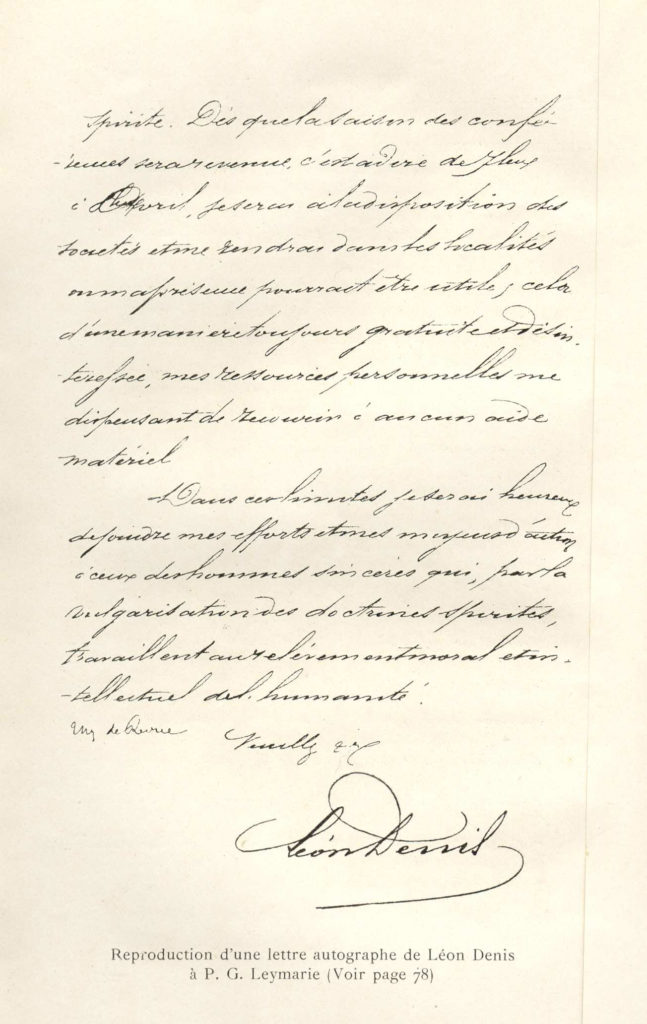 spirite. Dès que la saison des confé-
-rences sera revenue, c'est à dire de
à Avril, je serai à la disposition des
sociétés et me rendrai dans les localités
où ma présence pourrait être utile; cela
d'une manière toujours gratuite et désin-
téressée, mes ressources personnelles me
dispensant de recourir à aucun aide
matériel
Dans ces limites je serai heureux
de joindre mes efforts et mes moyens d'action
à ceux des hommes sincères qui, par la
vulgarisation des doctrines spirites,
travaillent au relèvement moral et in-
-tellectuel de l'humanité.
Veuillez
Léon Denis
Reproduction d'une lettre autographe de Léon Denis
à P. G. Leymarie (Voir page 78)